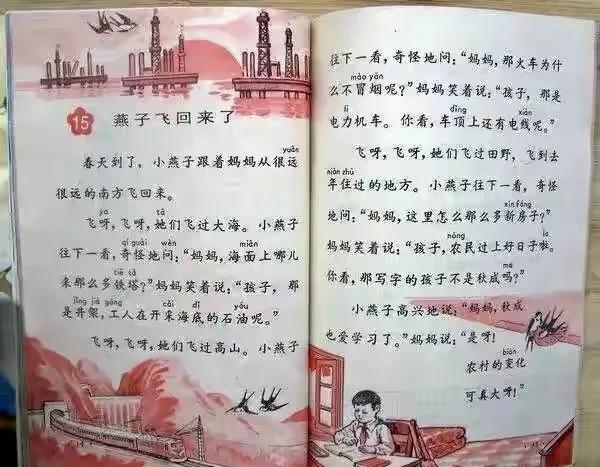 15 燕子飞回来了
yuǎn
春天到了，小燕子跟着妈妈从很远
很远的南方飞回来。
ya tā
飞呀，飞呀，她们飞过大海。小燕子
qí guài wèn miàn
往下一看，奇怪地问：“妈妈，海面上哪儿
tiě tǎ
来那么多铁塔？”妈妈笑着说：“孩子，那
jǐng jià gōng cǎi dǐ yóu
是井架，工人在开采海底的石油呢。”
飞呀，飞呀，她们飞过高山。小燕子
往下一看，奇怪地问：“妈妈，那火车为什
mào yān
么不冒烟呢？”妈妈笑着说：“孩子，那是
lì dǐng xiàn
电力机车。你看，车顶上还有电线呢。”
飞呀，飞呀，她们飞过田野，飞到去
nián zhù
年住过的地方。小燕子往下一看，奇怪
xīn fáng
地问：“妈妈，这里怎么那么多新房子？”
nóng la
妈妈笑着说：“孩子，农民过上好日子啦。
ma
你看，那写字的孩子不是秋成吗？”
小燕子高兴地说：“妈妈，秋成
也爱学习了。”妈妈说：“是呀！
biàn
农村的变化
可真大呀！”